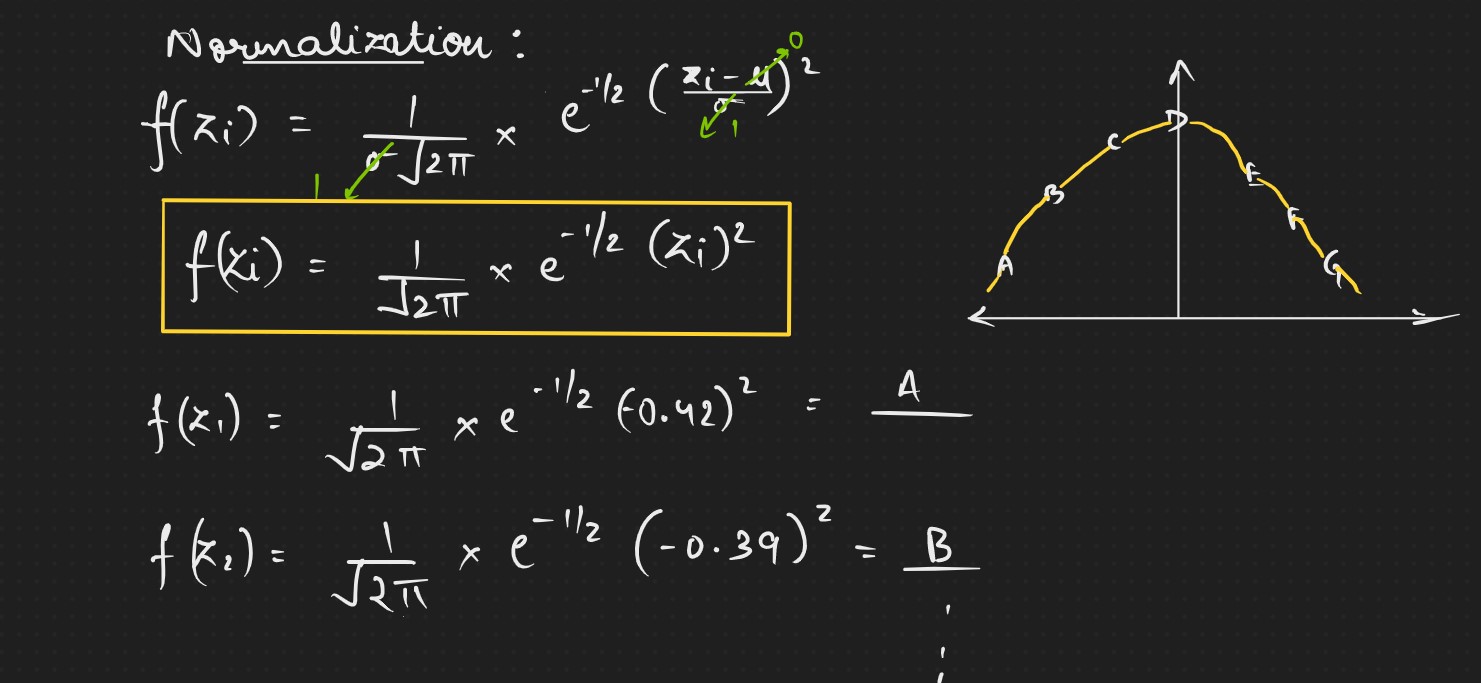 Normalization :
f(zᵢ) = 1/(σ√2π) × e^-1/2 ((zᵢ - μ)/σ)² 0 1
1
f(zᵢ) = 1/√2π × e^-1/2 (zᵢ)²
f(z₁) = 1/√2π × e^-1/2 (-0.42)² = A
f(z₂) = 1/√2π × e^-1/2 (-0.39)² = B
D
C
B
E
F
A
G